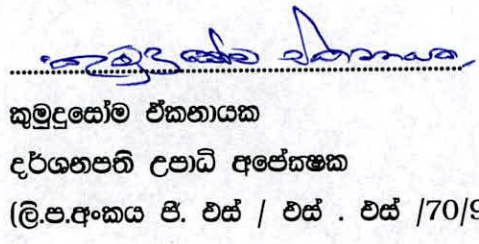 කුමුදුසෝම ඒකනායක
කුමුදුසෝම ඒකනායක
දර්ශනපති උපාධි අපේක්ෂක
(ලි.ප.අංකය ජී. එස් / එස් . එස් /70/9